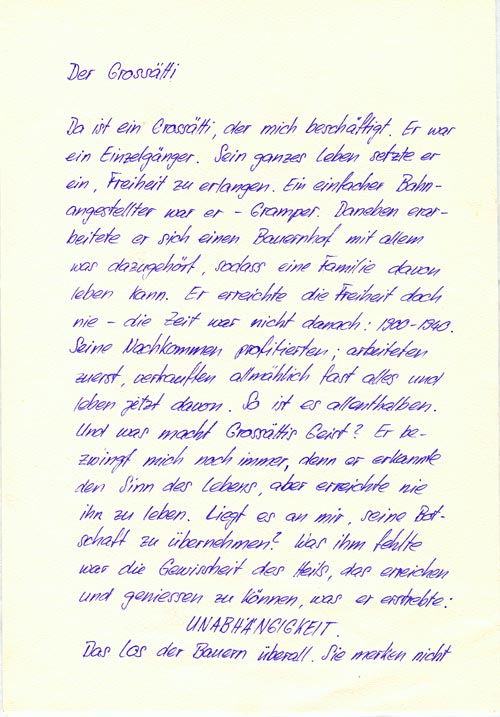 Der Grossätti
Da ist ein Grossätti, der mich beschäftigt. Er war
ein Einzelgänger. Sein ganzes Leben setzte er
ein, Freiheit zu erlangen. Ein einfacher Bahn-
angestellter war er - Gramper. Daneben erar-
beitete er sich einen Bauernhof mit allem
was dazugehört, sodass eine Familie davon
leben kann. Er erreichte die Freiheit doch
nie - die Zeit war nicht danach: 1900-1940.
Seine Nachkommen profitierten; arbeiteten
zuerst, verkauften allmählich fast alles und
leben jetzt davon. So ist es allenthalben.
Und was macht Grossättis Geist? Er be-
zwingt mich noch immer, denn er erkannte
den Sinn des Lebens, aber erreichte nie
ihn zu leben. Liegt es an mir, seine Bot-
schaft zu übernehmen? Was ihm fehlte
war die Gewissheit des Heils, das erreichen
und geniessen zu können, was er erstrebte:
UNABHÄNGIGKEIT.
Das Los der Bauern überall. Sie merken nicht